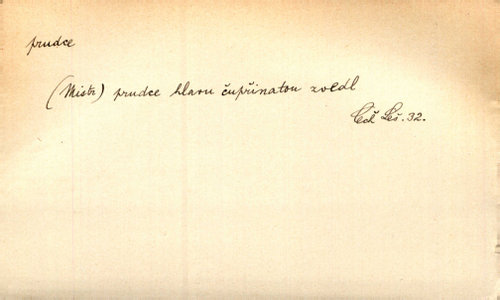 prudce
(Mistr) prudce hlavu čupřinatou zvedl
Čch Leš. 32.